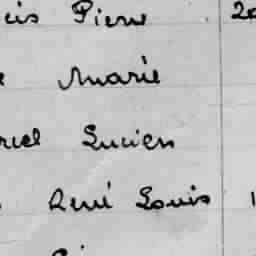 cis Pierre 20
Marie
rcel Lucien
René Louis 1